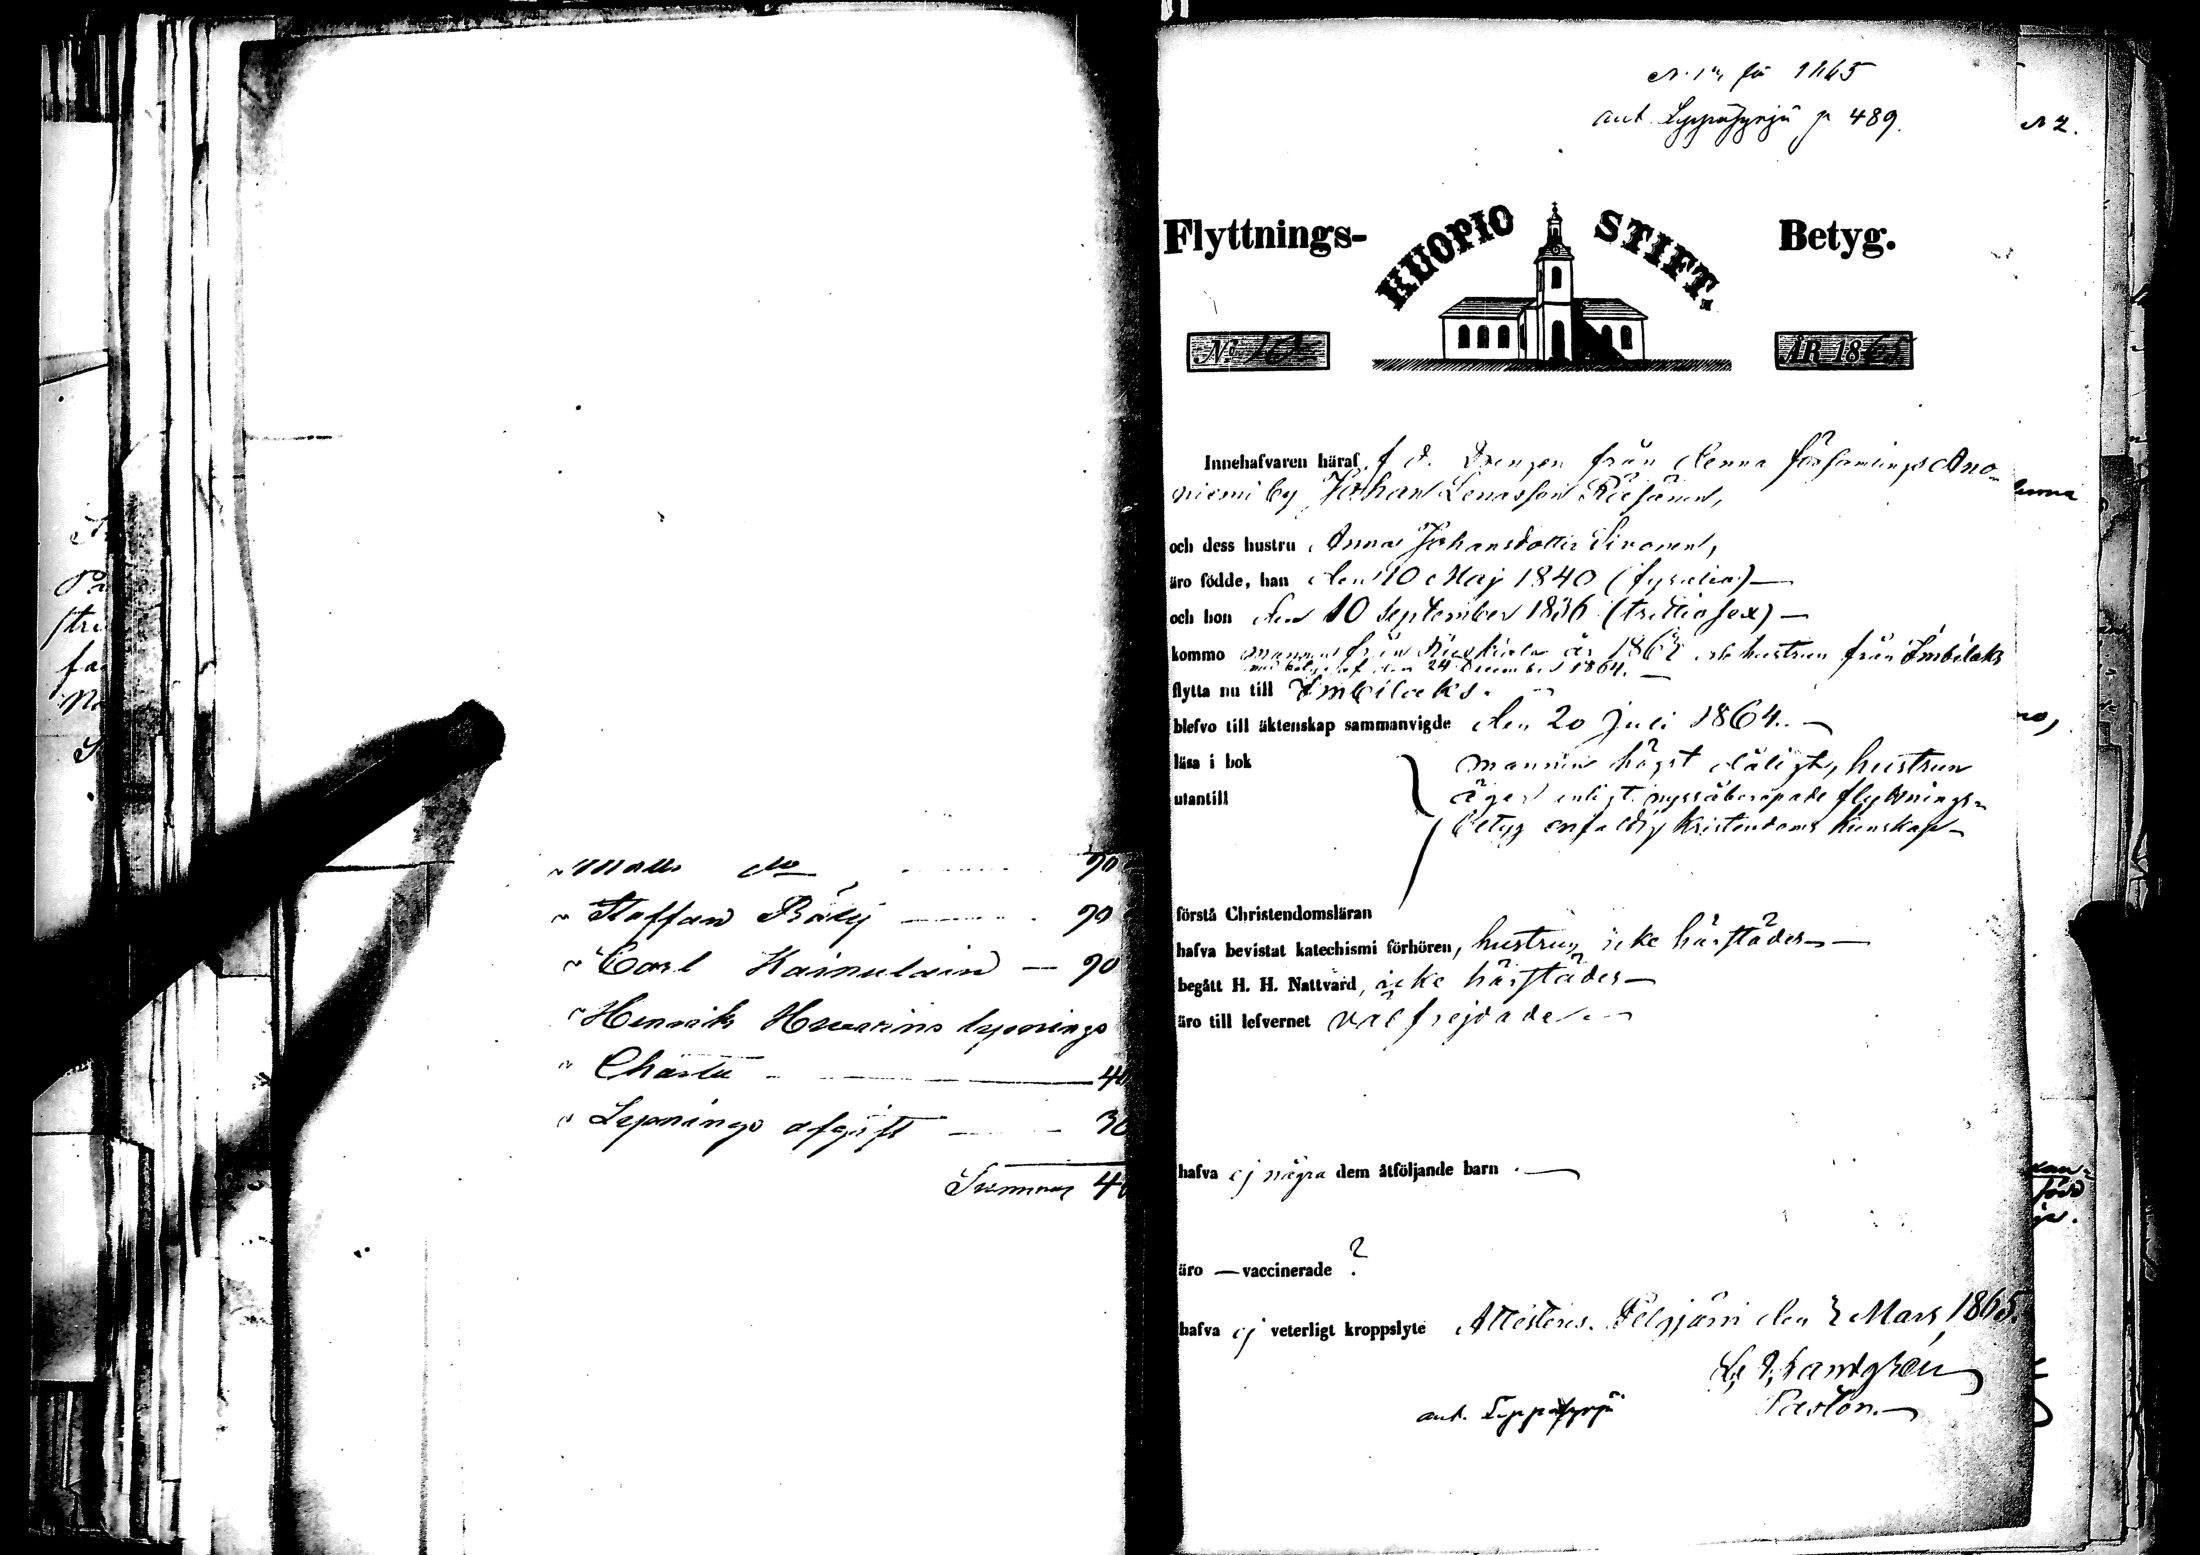 " Matts do 90
" Staffan Rälij 90
" Carl Kainulain — 90
" Henrik Hvarins lysnings
" Charta 40
" Lysnings afgift 30
Summa 4
för 1865
ant. Lyppäsyrjä p 489.
N 2.
Flyttnings- KUOPIO STIFT. Betyg.
No 10 ÅR 1865
Innehafvaren häraf f. d. Drengen från denna församlings Ano-
niemi by Johan Enarsson Räsänen,
och dess hustru Anna Johansdotter Sironen,
äro födde, han den 10 Maj 1840 (fyratio) —
och hon den 10 September 1836 (trettiosex) —
kommo mannen från Ruskiala år 186 och hustrun från Imbilaks
med betyg af den 24 December 1864. —
flytta nu till Imbilaks.
blefvo till äktenskap sammanvigde den 20 Juli 1864. —
läsa i bok mannen högst dåligt, hustrun
utantill äger enligt nyssåberopade flyttnings-
betyg enfaldig kristendoms kunskap —
förstå Christendomsläran
hafva bevistat katechismi förhören, hustrun icke härstädes —
begått H. H. Nattvard, icke härstädes —
äro till lefvernet välfrejdade. —
hafva ej några dem åtföljande barn . —
äro — vaccinerade ?
hafva ej veterligt kroppslyte Attesteras. Pelgjärvi den 3 Mars 1865.
Landgrén
Pastor. —
ant. Lyppäsyrjä